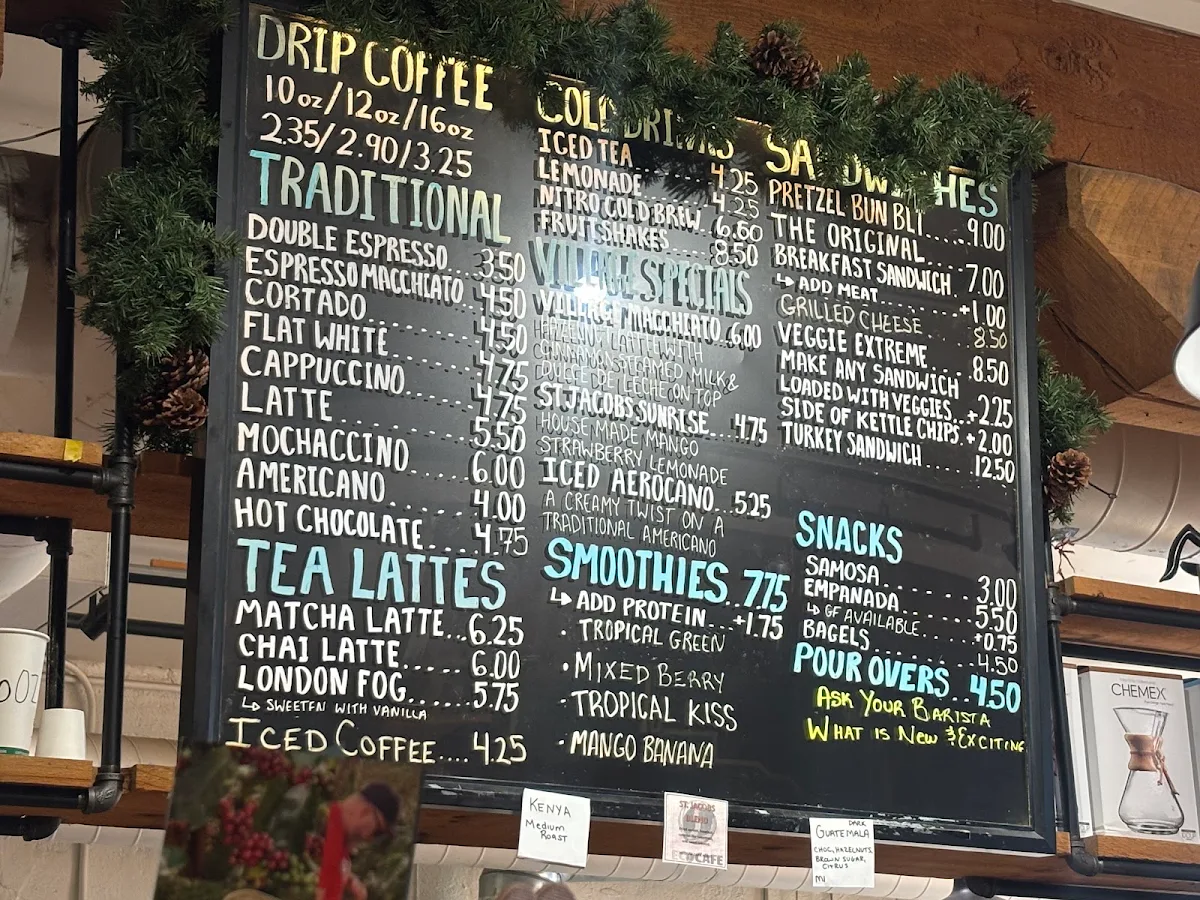 DRIP COFFEE
10oz/12oz/16oz
2.35/2.90/3.25
TRADITIONAL
DOUBLE ESPRESSO...3.50
ESPRESSO MACCHIATO.4.50
CORTADO......4.50
FLAT WHITE.....4.75
CAPPUCCINO....4.75
LATTE......5.50
MOCHACCINO....6.00
AMERICANO......4.00
HOT CHOCOLATE....4.75
TEA LATTES
MATCHA LATTE..6.25
CHAI LATTE.....6.00
LONDON FOG.....5.75
↳ SWEETEN WITH VANILLA
ICED COFFEE....4.25
COLD DRINKS
ICED TEA 4.25
LEMONADE 4.25
NITRO COLD BREW..6.60
FRUIT SHAKES...8.50
VILLAGE SPECIALS
VILLAGE MACCHIATO..6.00
LATTE WITH
CINNAMON STEAMED MILK &
DULCE DE LECHE ON TOP
ST JACOBS SUNRISE..4.75
HOUSE MADE MANGO
STRAWBERRY LEMONADE
ICED AEROCANO...5.25
A CREAMY TWIST ON A
TRADITIONAL AMERICANO
SMOOTHIES..7.75
↳ ADD PROTEIN...+1.75
· TROPICAL GREEN
· MIXED BERRY
· TROPICAL KISS
· MANGO BANANA
SANDWICHES
PRETZEL BUN BLT....9.00
THE ORIGINAL
BREAKFAST SANDWICH..7.00
↳ ADD MEAT.....+1.00
GRILLED CHEESE 8.50
VEGGIE EXTREME....8.50
MAKE ANY SANDWICH
LOADED WITH VEGGIES..+2.25
SIDE OF KETTLE CHIPS.+2.00
TURKEY SANDWICH.....12.50
SNACKS
SAMOSA.......3.00
EMPANADA......5.50
↳ GF AVAILABLE...+0.75
BAGELS......4.50
POUR OVERS..4.50
ASK YOUR BARISTA
WHAT IS NEW & EXCITING
KENYA
MEDIUM
ROAST
ST. JACOBS
BLEND
ECOCAFE
DARK
GUATEMALA
CHOC, HAZELNUTS,
BROWN SUGAR,
CITRUS
CHEMEX
OZ